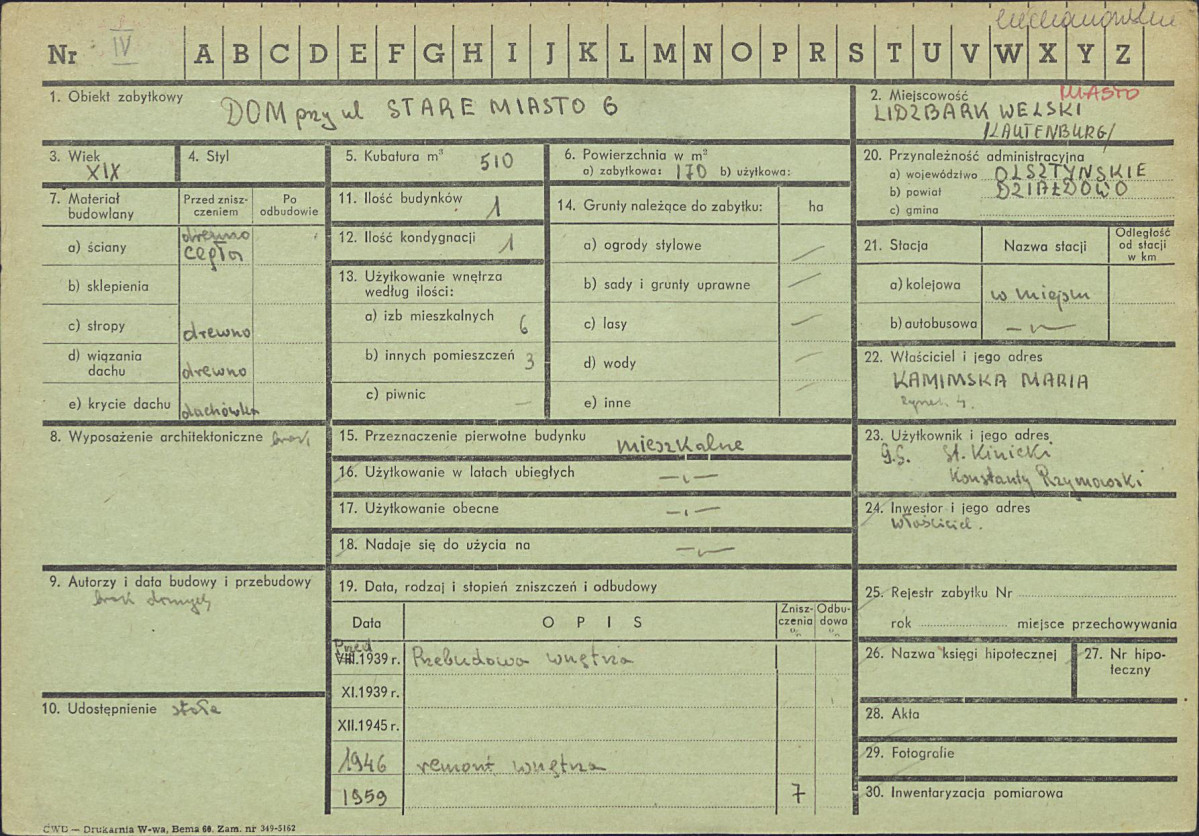 ciechanowskie
Nr IV A B C D E F G H I J K L M N O P R S T U V W X Y Z
1. Obiekt zabytkowy DOM przy ul STARE MIASTO 6
2. Miejscowość MIASTO
LIDZBARK WELSKI
/LAUTENBURG/
3. Wiek XIX
4. Styl
5. Kubatura m³ 510
6. Powierzchnia w m²
a) zabytkowa: 170 b) użytkowa:
20. Przynależność administracyjna
a) województwo OLSZTYŃSKIE
b) powiat DZIAŁDOWO
c) gmina
7. Materiał budowlany
Przed znisz-
czeniem
Po
odbudowie
a) ściany drewno
cegła
b) sklepienia
c) stropy drewno
d) wiązania
dachu drewno
e) krycie dachu dachówka
11. Ilość budynków 1
12. Ilość kondygnacji 1
13. Użytkowanie wnętrza
według ilości:
a) izb mieszkalnych 6
b) innych pomieszczeń 3
c) piwnic —
14. Grunty należące do zabytku: ha
a) ogrody stylowe
b) sady i grunty uprawne
c) lasy
d) wody
e) inne
21. Stacja Nazwa stacji
Odległość
od stacji
w km
a) kolejowa w miejscu
b) autobusowa -"-
22. Właściciel i jego adres
KAMIMSKA MARIA
Rynek 4.
8. Wyposażenie architektoniczne brak
15. Przeznaczenie pierwotne budynku mieszkalne
16. Użytkowanie w latach ubiegłych -"-
17. Użytkowanie obecne -"-
18. Nadaje się do użycia na -"-
23. Użytkownik i jego adres
g.g. St. Kinicki
Konstanty Rzymowski
24. Inwestor i jego adres
właściciel.
9. Autorzy i data budowy i przebudowy
brak danych
19. Data, rodzaj i stopień zniszczeń i odbudowy
Data O P I S
Znisz-
czenia
%
Odbu-
dowa
%
Przed
VIII.1939 r. Przebudowa wnętrza
XI.1939 r.
XII.1945 r.
1946 remont wnętrza
1959 7
25. Rejestr zabytku Nr
rok miejsce przechowywania
26. Nazwa księgi hipotecznej
27. Nr hipo-
teczny
10. Udostępnienie stałe
28. Akta
29. Fotografie
30. Inwentaryzacja pomiarowa
CWD — Drukarnia W-wa, Bema 60. Zam. nr 349-5162